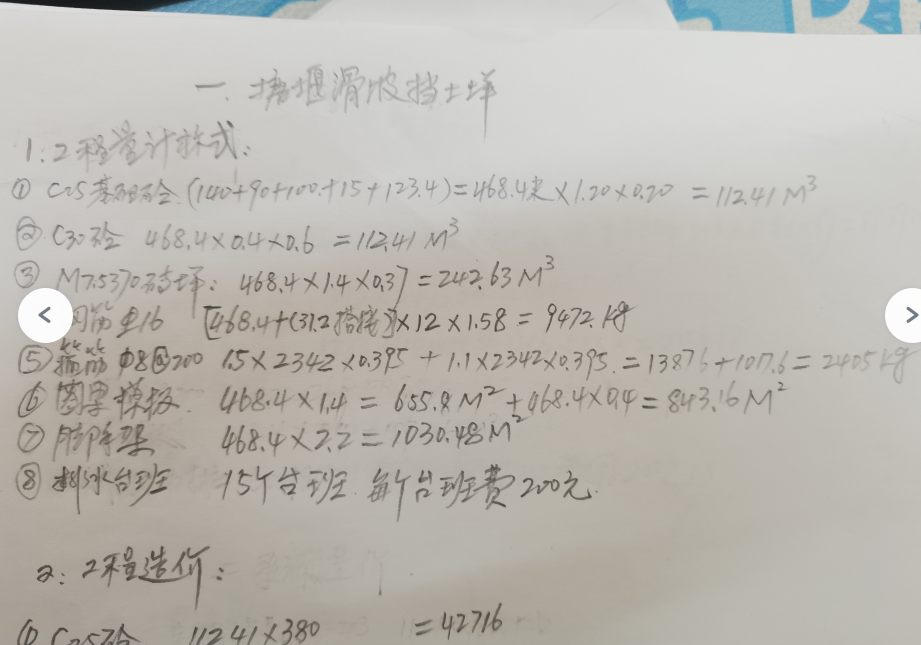 一、塘堰滑坡挡土垟
1:2程量计祘式:
① C25基础砼(140+90+100.+15+123.4)=468.4米×1.20×0.20 =112.41 M³
② C30砼 468.4×0.4×0.6 =112.41 M³
③ M7.5370砖垟: 468.4×1.4×0.37=242.63 M³
筋 ф16 [468.4+(31.2搭接)]×12×1.58 = 9472.kg
⑤ 箍筋 φ8@200 1.5×2342×0.395 + 1.1×2342×0.395.=1387.6+1017.6=2405kg
⑥ 模板 468.4×1.4 = 655.8 M²+468.4×0.4=843.16 M²
⑦ 脚手架 468.4×2.2=1030.48 M²
⑧ 排水台班 15个台班 每个台班费200元.
2: 2程造价:
① C25砼 112.41×380 =42716